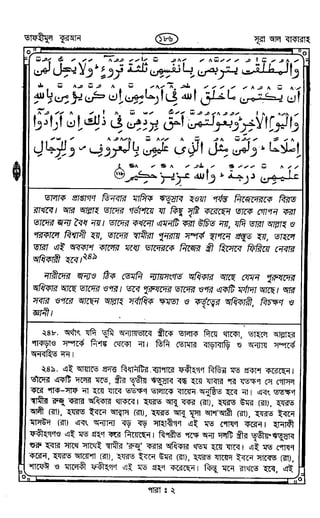 তাফহীমুল কুরআন ১৮৬ সূরা আল বাকারাহ
وَالْمُطَلَّقٰتُ يَتَرَبَّصْنَ بِاَنْفُسِهِنَّ ثَلٰثَةَ قُرُوْٓءٍ ؕ وَلَا يَحِلُّ لَهُنَّ
اَنْ يَّكْتُمْنَ مَا خَلَقَ اللّٰهُ فِيْٓ اَرْحَامِهِنَّ اِنْ كُنَّ يُؤْمِنَّ بِاللّٰهِ
وَالْيَوْمِ الْاٰخِرِ ؕ وَبُعُوْلَتُهُنَّ اَحَقُّ بِرَدِّهِنَّ فِيْ ذٰلِكَ اِنْ اَرَادُوْٓا
اِصْلَاحًا ؕ وَلَهُنَّ مِثْلُ الَّذِيْ عَلَيْهِنَّ بِالْمَعْرُوْفِ ۪ وَلِلرِّجَالِ
عَلَيْهِنَّ دَرَجَةٌ ؕ وَاللّٰهُ عَزِيْزٌ حَكِيْمٌ
তালাক প্রাপ্তাগণ তিনবার মাসিক ঋতুস্রাব হওয়া পর্যন্ত নিজেদেরকে বিরত
রাখবে। আর আল্লাহ তাদের গর্ভাশয়ে যা কিছু সৃষ্টি করেছেন তাকে গোপন করা
তাদের জন্য বৈধ নয়। তাদের কখনো এমনটি করা উচিত নয়, যদি তারা আল্লাহ ও
পরকালে বিশ্বাসী হয়, তাদের স্বামীরা পুনরায় সম্পর্ক স্থাপনে প্রস্তুত হয়, তাহলে
তারা এই অবকাশ কালের মধ্যে তাদেরকে নিজের স্ত্রী হিসেবে ফিরিয়ে নেবার
অধিকারী হবে।২৪৯
নারীদের জন্যও ঠিক তেমনি ন্যায়সংগত অধিকার আছে যেমন পুরুষদের
অধিকার আছে তাদের ওপর। তবে পুরুষদের তাদের ওপর একটি মর্যাদা আছে। আর
সবার ওপরে আছেন আল্লাহ সর্বাধিক ক্ষমতা ও কর্তৃত্বের অধিকারী, বিচক্ষণ ও
জ্ঞানী।
২৪৮. অর্থাৎ যদি তুমি অন্যায়ভাবে স্ত্রীকে তালাক দিয়ে থাকো, তাহলে আল্লাহর
পাকড়াও সম্পর্কে নিশঙ্ক থেকো না। তিনি তোমার বাড়াবাড়ি ও অন্যায় সম্পর্কে
অনবহিত নন।
২৪৯. এই আয়াতে প্রদত্ত বিধানটির ব্যাপারে ফকীহগণ বিভিন্ন মত প্রকাশ করেছেন।
তাঁদের একটি দলের মতে, স্ত্রীর তৃতীয় ঋতুস্রাব বন্ধ হয়ে যাবার পর যতক্ষণ সে গোসল
করে পাক-সাফ না হয়ে যাবে ততক্ষণ তালাকে বায়েন অনুষ্ঠিত হবে না। এবং ততক্ষণ
স্বামীর রুজু করার অধিকার থাকবে। হযরত আবু বকর (রা), হযরত উমর (রা), হযরত
আলী (রা), হযরত ইবনে আব্বাস (রা), হযরত আবু মূসা আশআরী (রা), হযরত ইবনে
মাসউদ (রা) এবং অন্যান্য বড় বড় সাহাবীগণ এই মত পোষণ করেন। হানাফী
ফকীহগণও এই মত গ্রহণ করে নিয়েছেন। বিপরীত পক্ষে অন্য দলটি স্ত্রীর তৃতীয় ঋতুস্রাব
শুরু হবার সাথে সাথেই স্বামীর 'রুজু' করার অধিকার খতম হয়ে যাবে। এই মত পোষণ
করেন, হযরত আয়েশা (রা), হযরত ইবনে উমর (রা), হযরত যায়েদ ইবনে সাবেত (রা),
শাফেঈ ও মালেকী ফকীহগণ এই মত গ্রহণ করেছেন। কিন্তু মনে রাখতে হবে, এই
পারা : ২